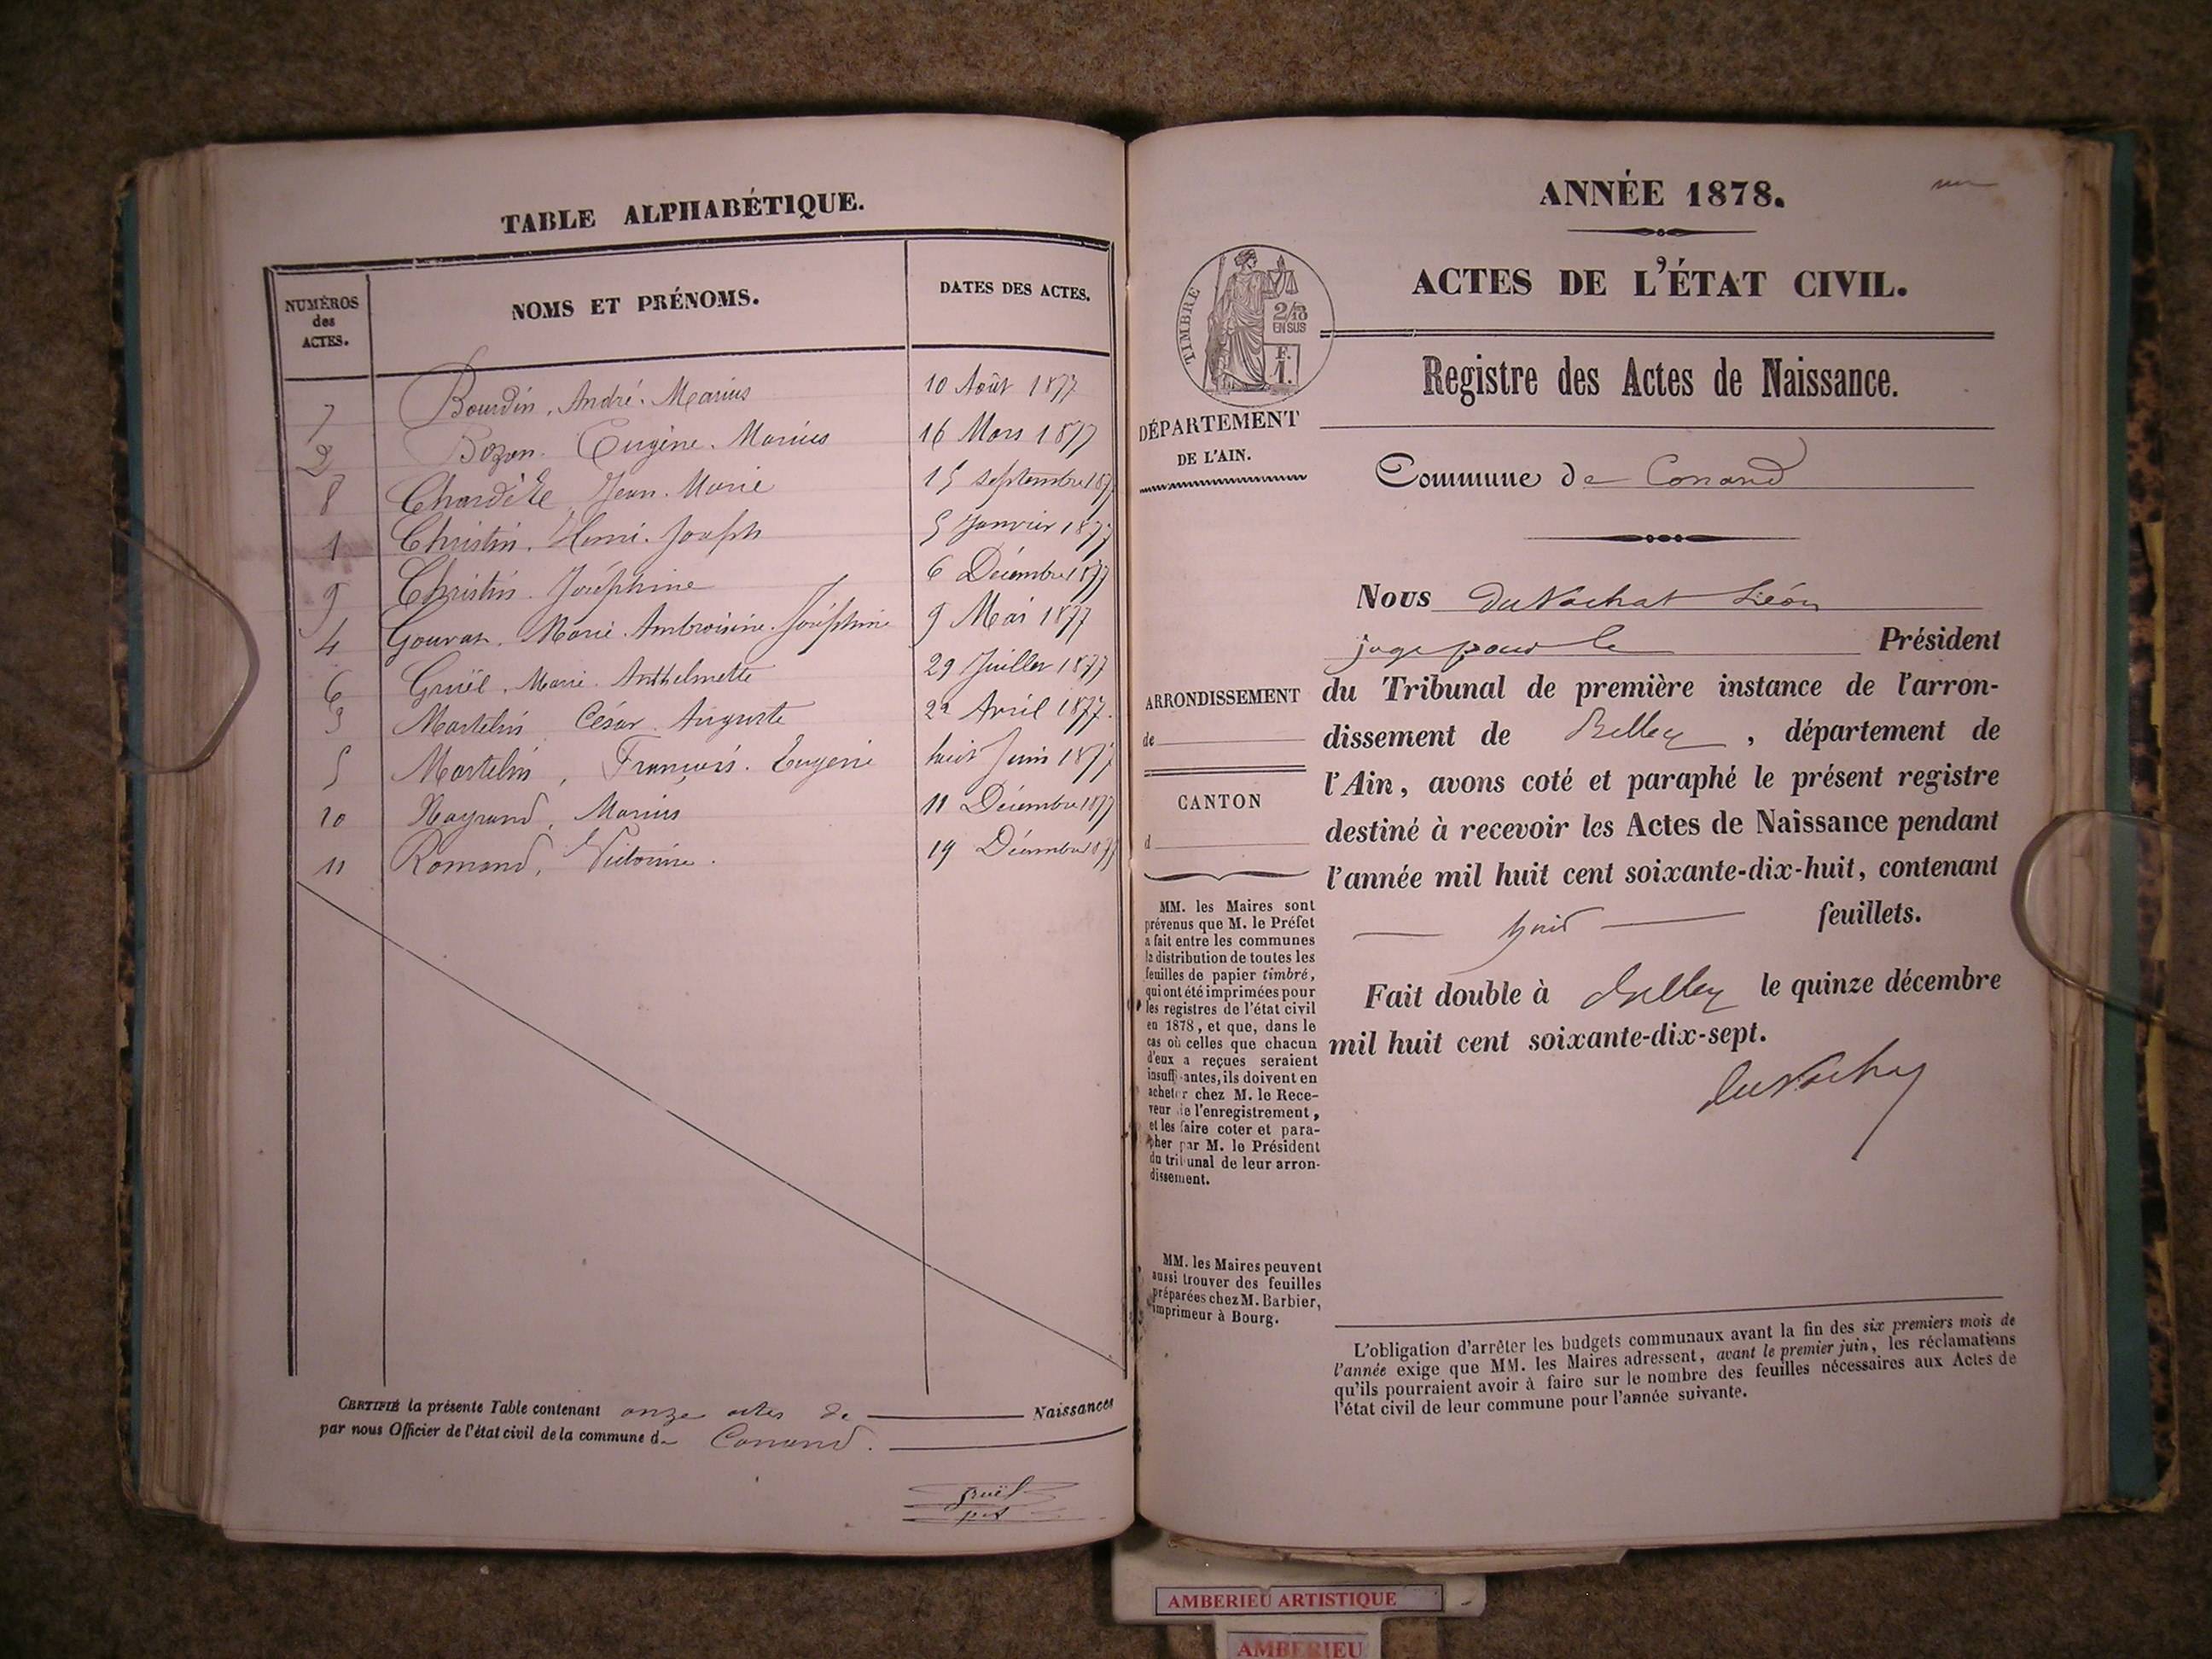 TABLE ALPHABÉTIQUE.
NUMÉROS des ACTES. NOMS ET PRÉNOMS. DATES DES ACTES.
7 Bourdin, André. Marius 10 Août 1877
2 Bozon. Eugène. Marius 16 Mars 1877
8 Jean. Marie 15 septembre 187
1 Christin. Henri. Joseph 5 Janvier 1877
9 Christin. Joséphine 6 Décembre 1877
4 Marie. Ambroisine. Joséphine 9 Mai 1877
6 Gruël, Marie. Anthelmette 29 Juillet 1877
3 Martelin César Auguste 22 Avril 1877.
5 Martelin, François. Eugène huit Juin 1877
10 Marius 11 Décembre 1877
11 Romand, Victorine. 19 Décembre 1877
CERTIFIÉ la présente Table contenant onze actes de Naissances
par nous Officier de l'état civil de la commune de Conand.
Gruël
ANNÉE 1878.
ACTES DE L'ÉTAT CIVIL.
TIMBRE
2/10
EN SUS
F.
1.
Registre des Actes de Naissance.
DÉPARTEMENT
DE L'AIN.
Commune de Conand
Nous DuVachat Léon
juge pour le Président
du Tribunal de première instance de l'arron-
dissement de Belley, département de
l'Ain, avons coté et paraphé le présent registre
destiné à recevoir les Actes de Naissance pendant
l'année mil huit cent soixante-dix-huit, contenant
huit feuillets.
Fait double à Belley le quinze décembre
mil huit cent soixante-dix-sept.
DuVachat
ARRONDISSEMENT
de
CANTON
d
MM. les Maires sont
prévenus que M. le Préfet
a fait entre les communes
la distribution de toutes les
feuilles de papier timbré,
qui ont été imprimées pour
les registres de l'état civil
en 1878, et que, dans le
cas où celles que chacun
d'eux a reçues seraient
insuffisantes, ils doivent en
acheter chez M. le Rece-
veur de l'enregistrement,
et les faire coter et para-
pher par M. le Président
du tribunal de leur arron-
dissement.
MM. les Maires peuvent
aussi trouver des feuilles
préparées chez M. Barbier,
imprimeur à Bourg.
L'obligation d'arrêter les budgets communaux avant la fin des six premiers mois de
l'année exige que MM. les Maires adressent, avant le premier juin, les réclamations
qu'ils pourraient avoir à faire sur le nombre des feuilles nécessaires aux Actes de
l'état civil de leur commune pour l'année suivante.
AMBERIEU ARTISTIQUE
AMBERIEU